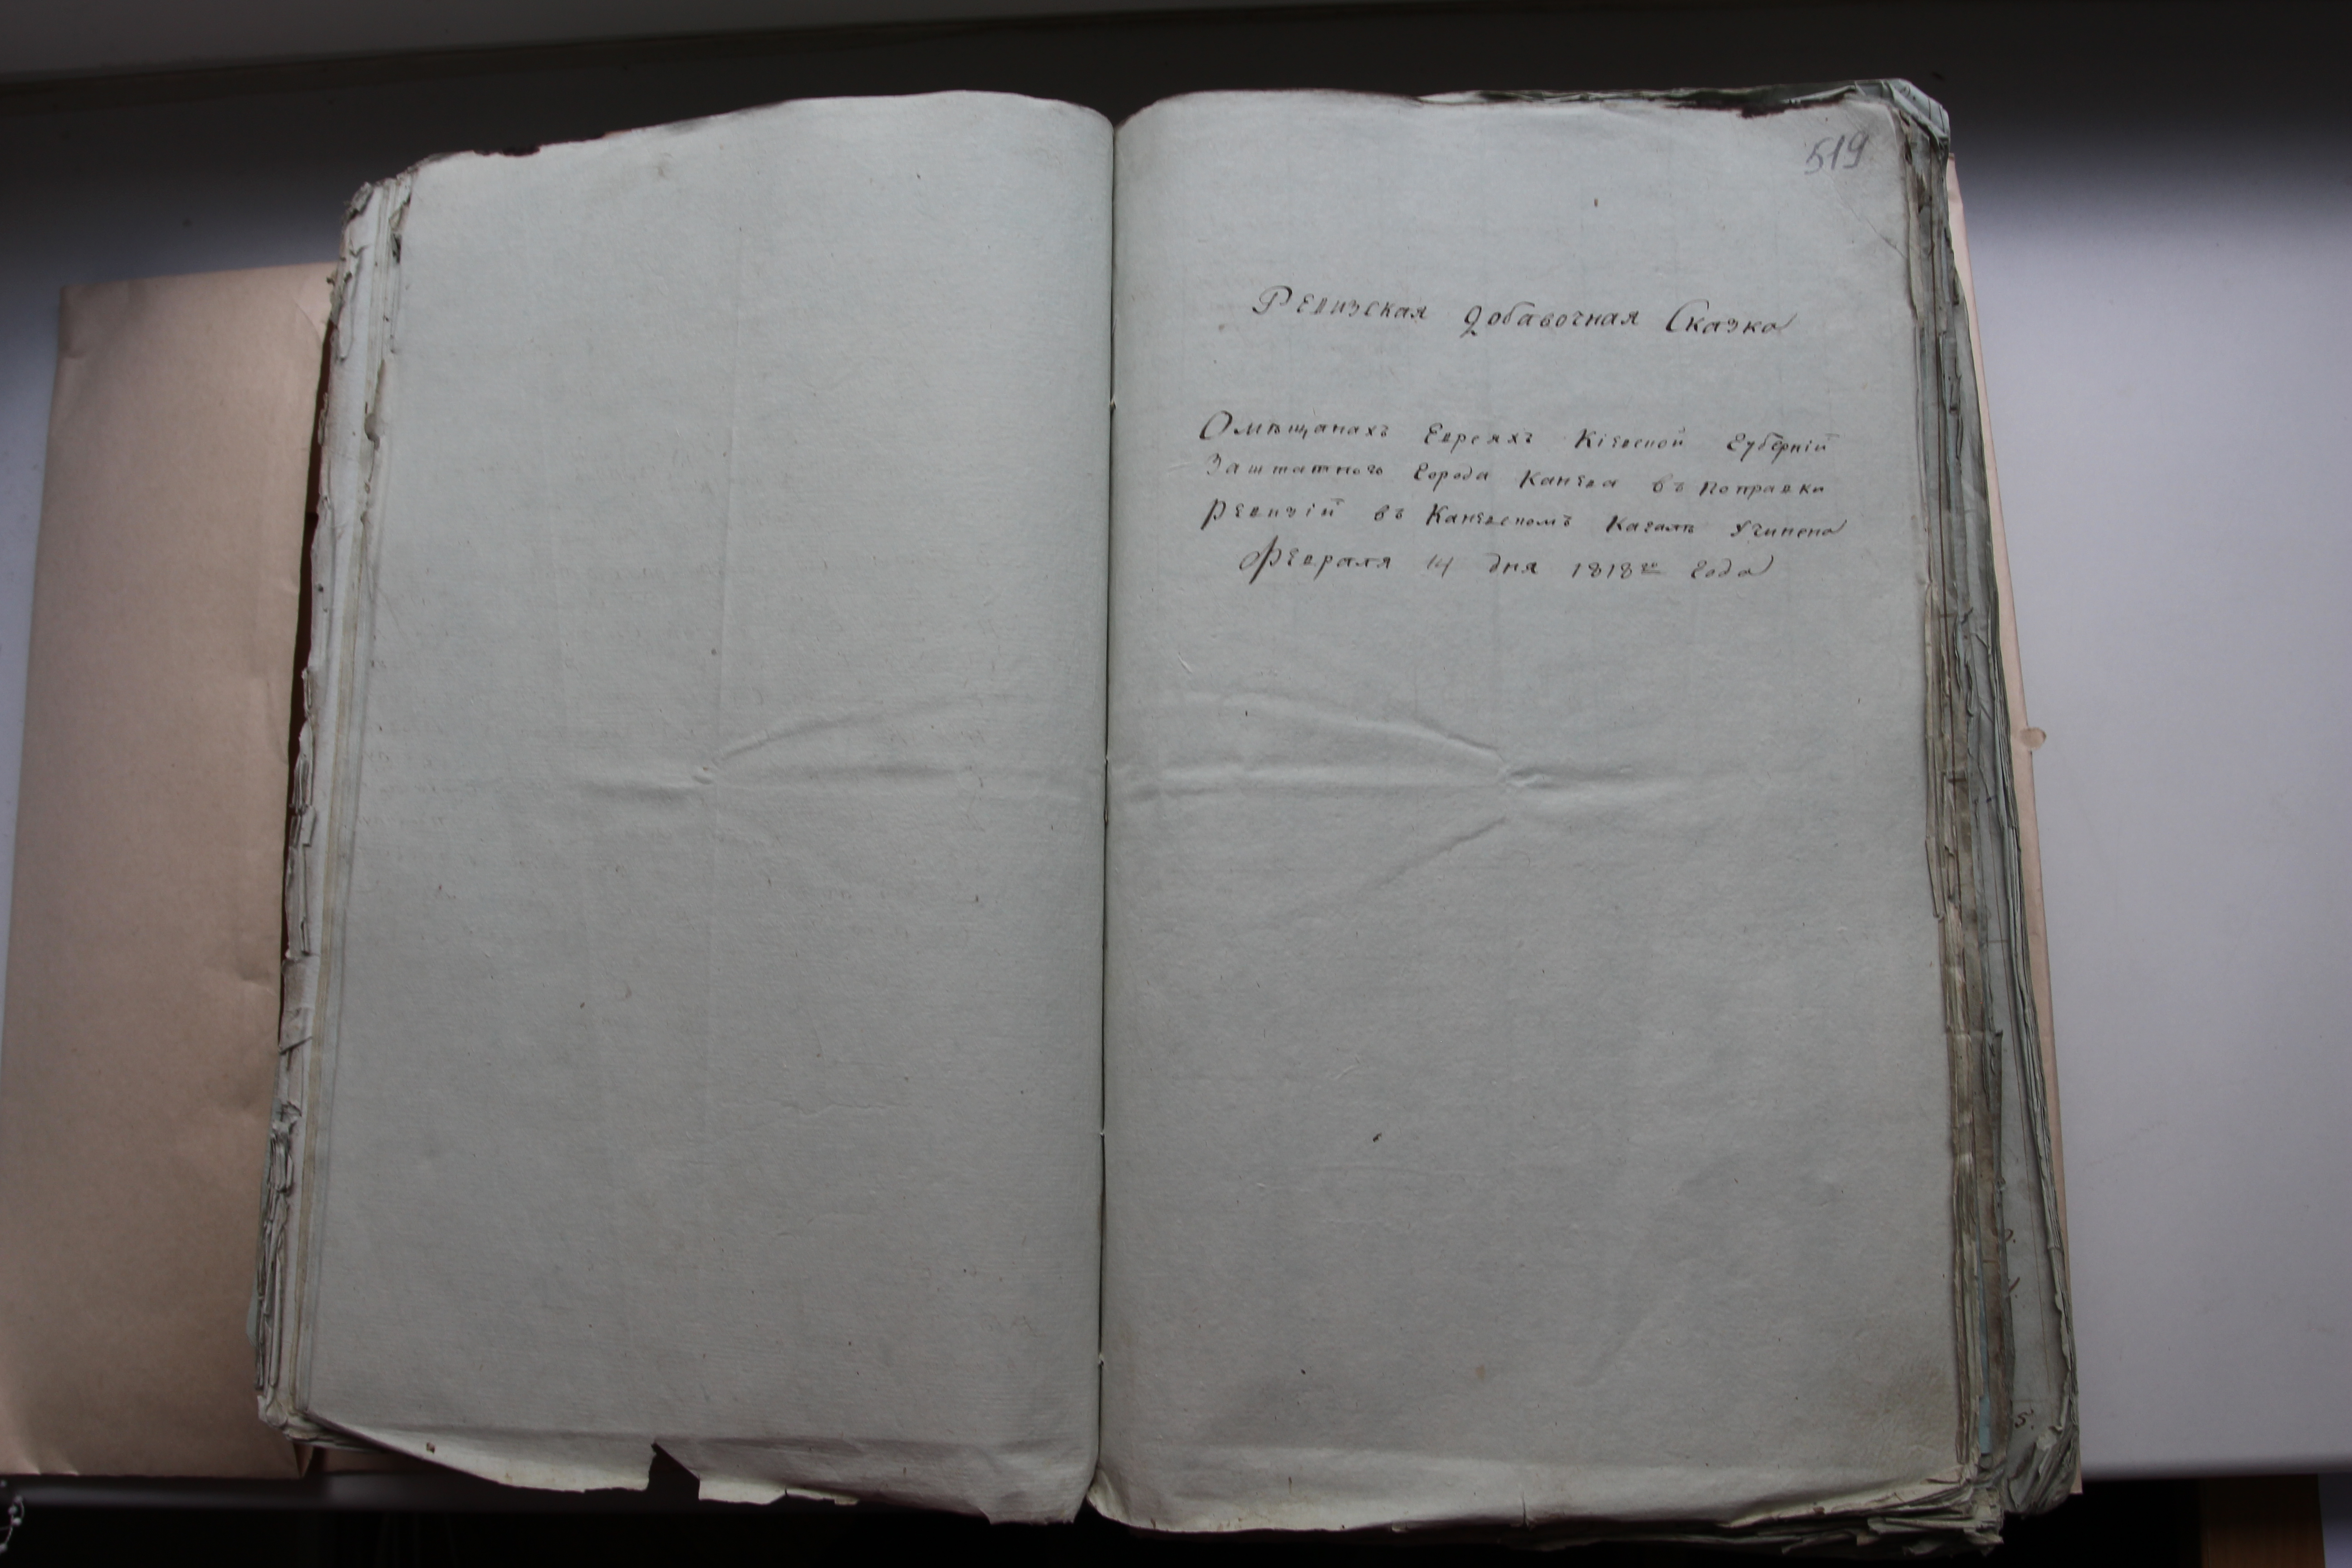 519
Ревизская добавочная Сказка
О мѣщанахъ Евреяхъ Кіевской Губерніи
Заштатного города Канева въ поправки
Ревизіи въ Каневскомъ Кагалѣ Учинена
Февраля 14 дня 1818го года